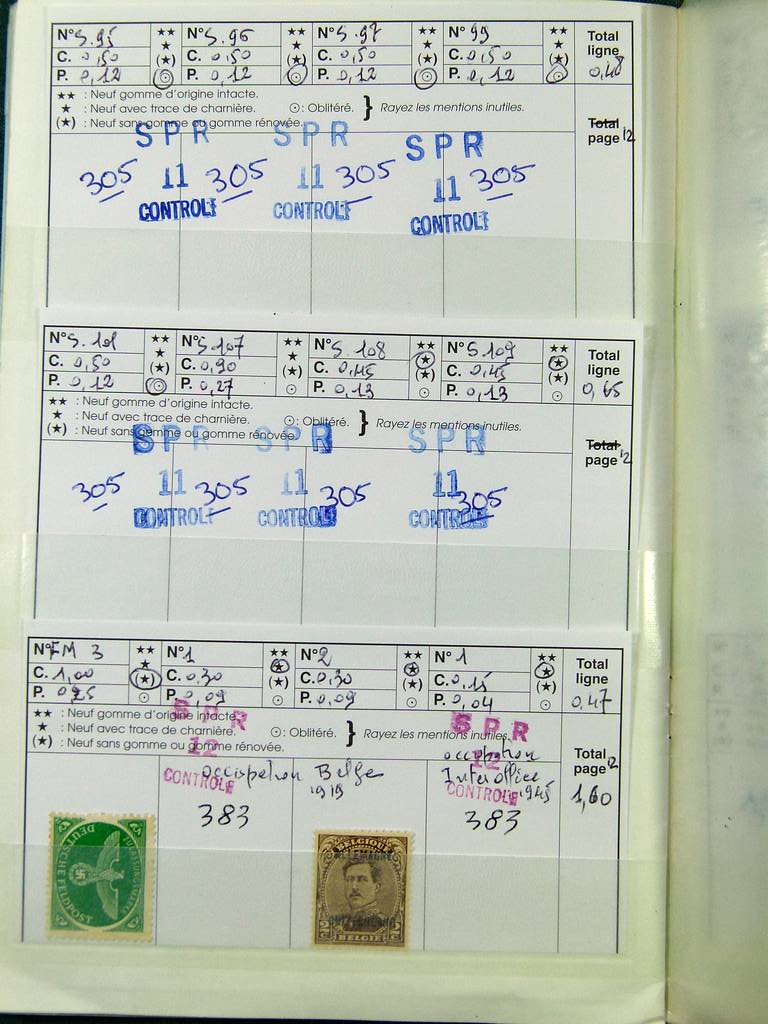 N° S.95 ★★ N° S.96 ★★ N° S.97 ★★ N° 99 ★★ Total
C. 0,50 ★ C. 0,50 ★ C. 0,50 ★ C. 0,50 ★ ligne
P. 0,12 (★) P. 0,12 (★) P. 0,12 (★) P. 0,12 (★) 0,48
★★ : Neuf gomme d'origine intacte.
★ : Neuf avec trace de charnière. ⊙: Oblitéré. } Rayez les mentions inutiles.
(★) : Neuf sans gomme ou gomme rénovée.
Total
page 12
SPR SPR SPR
305 11 305 11 305 11 305
CONTROLE CONTROLE CONTROLE
N° S.101 ★★ N° S.107 ★★ N° S.108 ★★ N° S.109 ★★ Total
C. 0,50 ★ C. 0,90 ★ C. 0,45 ★ C. 0,45 ★ ligne
P. 0,12 (★) P. 0,27 (★) P. 0,13 (★) P. 0,13 (★) 0,65
★★ : Neuf gomme d'origine intacte.
★ : Neuf avec trace de charnière. ⊙: Oblitéré. } Rayez les mentions inutiles.
(★) : Neuf sans gomme ou gomme rénovée.
Total
page 12
SPR SPR SPR
305 11 305 11 305 11 305
CONTROLE CONTROLE CONTROLE
N° FM 3 ★★ N° 1 ★★ N° 2 ★★ N° 1 ★★ Total
C. 1,00 ★ C. 0,30 ★ C. 0,30 ★ C. 0,15 ★ ligne
P. 0,25 (★) P. 0,09 (★) P. 0,09 (★) P. 0,04 (★) 0,47
★★ : Neuf gomme d'origine intacte.
★ : Neuf avec trace de charnière. ⊙: Oblitéré. } Rayez les mentions inutiles.
(★) : Neuf sans gomme ou gomme rénovée.
Total
page 12
1,60
SPR SPR
12 12
CONTROLE CONTROLE
occupation Belge
1919
383
occupation
Interoffice
1945
383
ZULASSUNGSMARKE
DEUTSCHE FELDPOST
BELGIQUE
ALLEMAGNE
DUITSCHLAND
2c BELGIË 2c